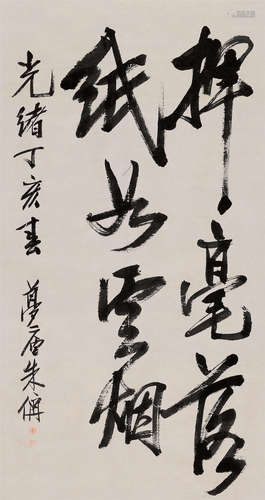 揮毫落
紙如雲烟
光緒丁亥春
夢廬朱偁